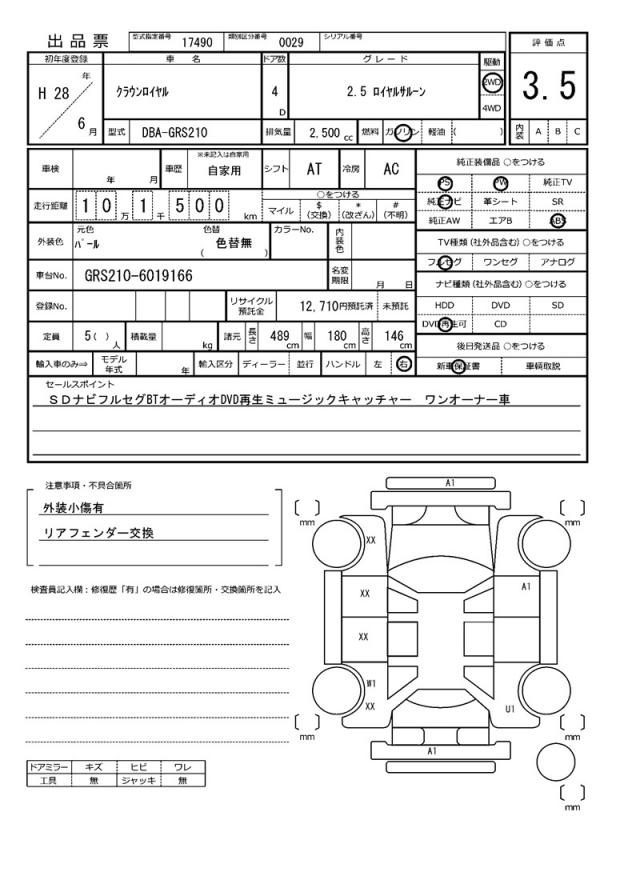 出品票 型式指定番号 17490 類別区分番号 0029 シリアル番号
評価点
3.5
内装 A B C
初年度登録 車名 ドア数 グレード 駆動
H 28 年 6 月
クラウンロイヤル 4 D 2.5 ロイヤルサルーン 2WD
4WD
型式 DBA-GRS210 排気量 2,500 cc 燃料 ガソリン 軽油 ( )
車検 年 月 車歴 ※未記入は自家用 自家用 シフト AT 冷房 AC
走行距離 10万1千500 km
○をつける
マイル $(交換) *(改ざん) #(不明)
外装色 元色 パール 色替 色替無 ( ) カラーNo. 内装色
車台No. GRS210-6019166 名変期限 月 日
登録No. リサイクル預託金 12,710円預託済 未預託
定員 5( )人 積載量 kg 諸元 長さ 489cm 幅 180cm 高さ 146cm
輸入車のみ⇒ モデル年式 年 輸入区分 ディーラー 並行 ハンドル 左 右
純正装備品 ○をつける
PS PW 純正TV
純正ナビ 革シート SR
純正AW エアB ABS
TV種類 (社外品含む) ○をつける
フルセグ ワンセグ アナログ
ナビ種類 (社外品含む) ○をつける
HDD DVD SD
DVD再生可 CD
後日発送品 ○をつける
新車保証書 車輌取説
セールスポイント
SDナビフルセグBTオーディオDVD再生ミュージックキャッチャー ワンオーナー車
注意事項・不具合箇所
外装小傷有
リアフェンダー交換
検査員記入欄：修復歴「有」の場合は修復箇所・交換箇所を記入
ドアミラー キズ ヒビ ワレ
工具 無 ジャッキ 無
A1
mm mm
XX
XX A1
XX
W1
XX U1
mm mm
A1
mm